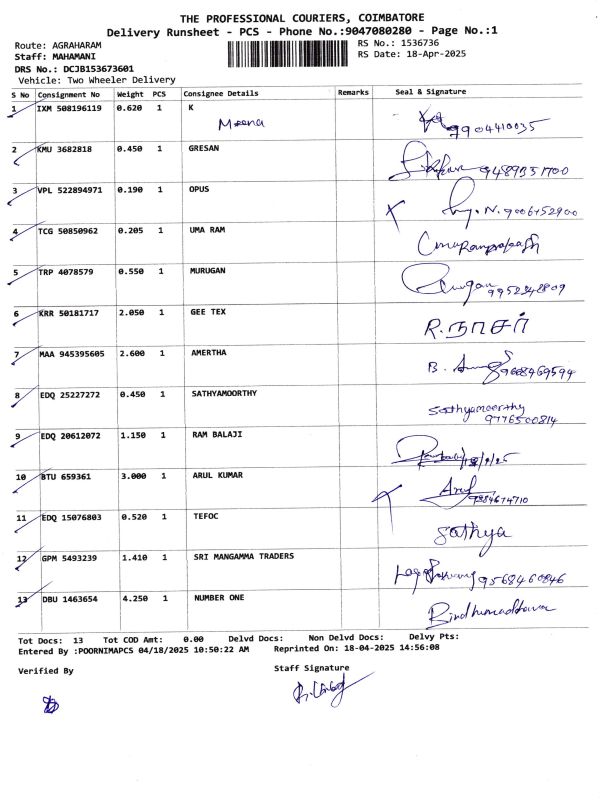 THE PROFESSIONAL COURIERS, COIMBATORE
Delivery Runsheet - PCS - Phone No.:9047080280 - Page No.:1
Route: AGRAHARAM RS No.: 1536736
Staff: MAHAMANI RS Date: 18-Apr-2025
DRS No.: DCJB153673601
Vehicle: Two Wheeler Delivery
S No Consignment No Weight PCS Consignee Details Remarks Seal & Signature
1 IXM 508196119 0.620 1 K
Meena 9904410035
2 KMU 3682818 0.450 1 GRESAN
9489351700
3 VPL 522894971 0.190 1 OPUS
4 TCG 50850962 0.205 1 UMA RAM
5 TRP 4078579 0.550 1 MURUGAN
9952342809
6 KRR 50181717 2.050 1 GEE TEX
R. நாசர்
7 MAA 945395605 2.600 1 AMERTHA
B.
8 EDQ 25227272 0.450 1 SATHYAMOORTHY
Sathyamoorthy
9776500814
9 EDQ 20612072 1.150 1 RAM BALAJI
10 BTU 659361 3.000 1 ARUL KUMAR
Arul
9884674710
11 EDQ 15076803 0.520 1 TEFOC
Sathya
12 GPM 5493239 1.410 1 SRI MANGAMMA TRADERS
9568460846
13 DBU 1463654 4.250 1 NUMBER ONE
Tot Docs: 13 Tot COD Amt: 0.00 Delvd Docs: Non Delvd Docs: Delvy Pts:
Entered By :POORNIMAPCS 04/18/2025 10:50:22 AM Reprinted On: 18-04-2025 14:56:08
Verified By Staff Signature